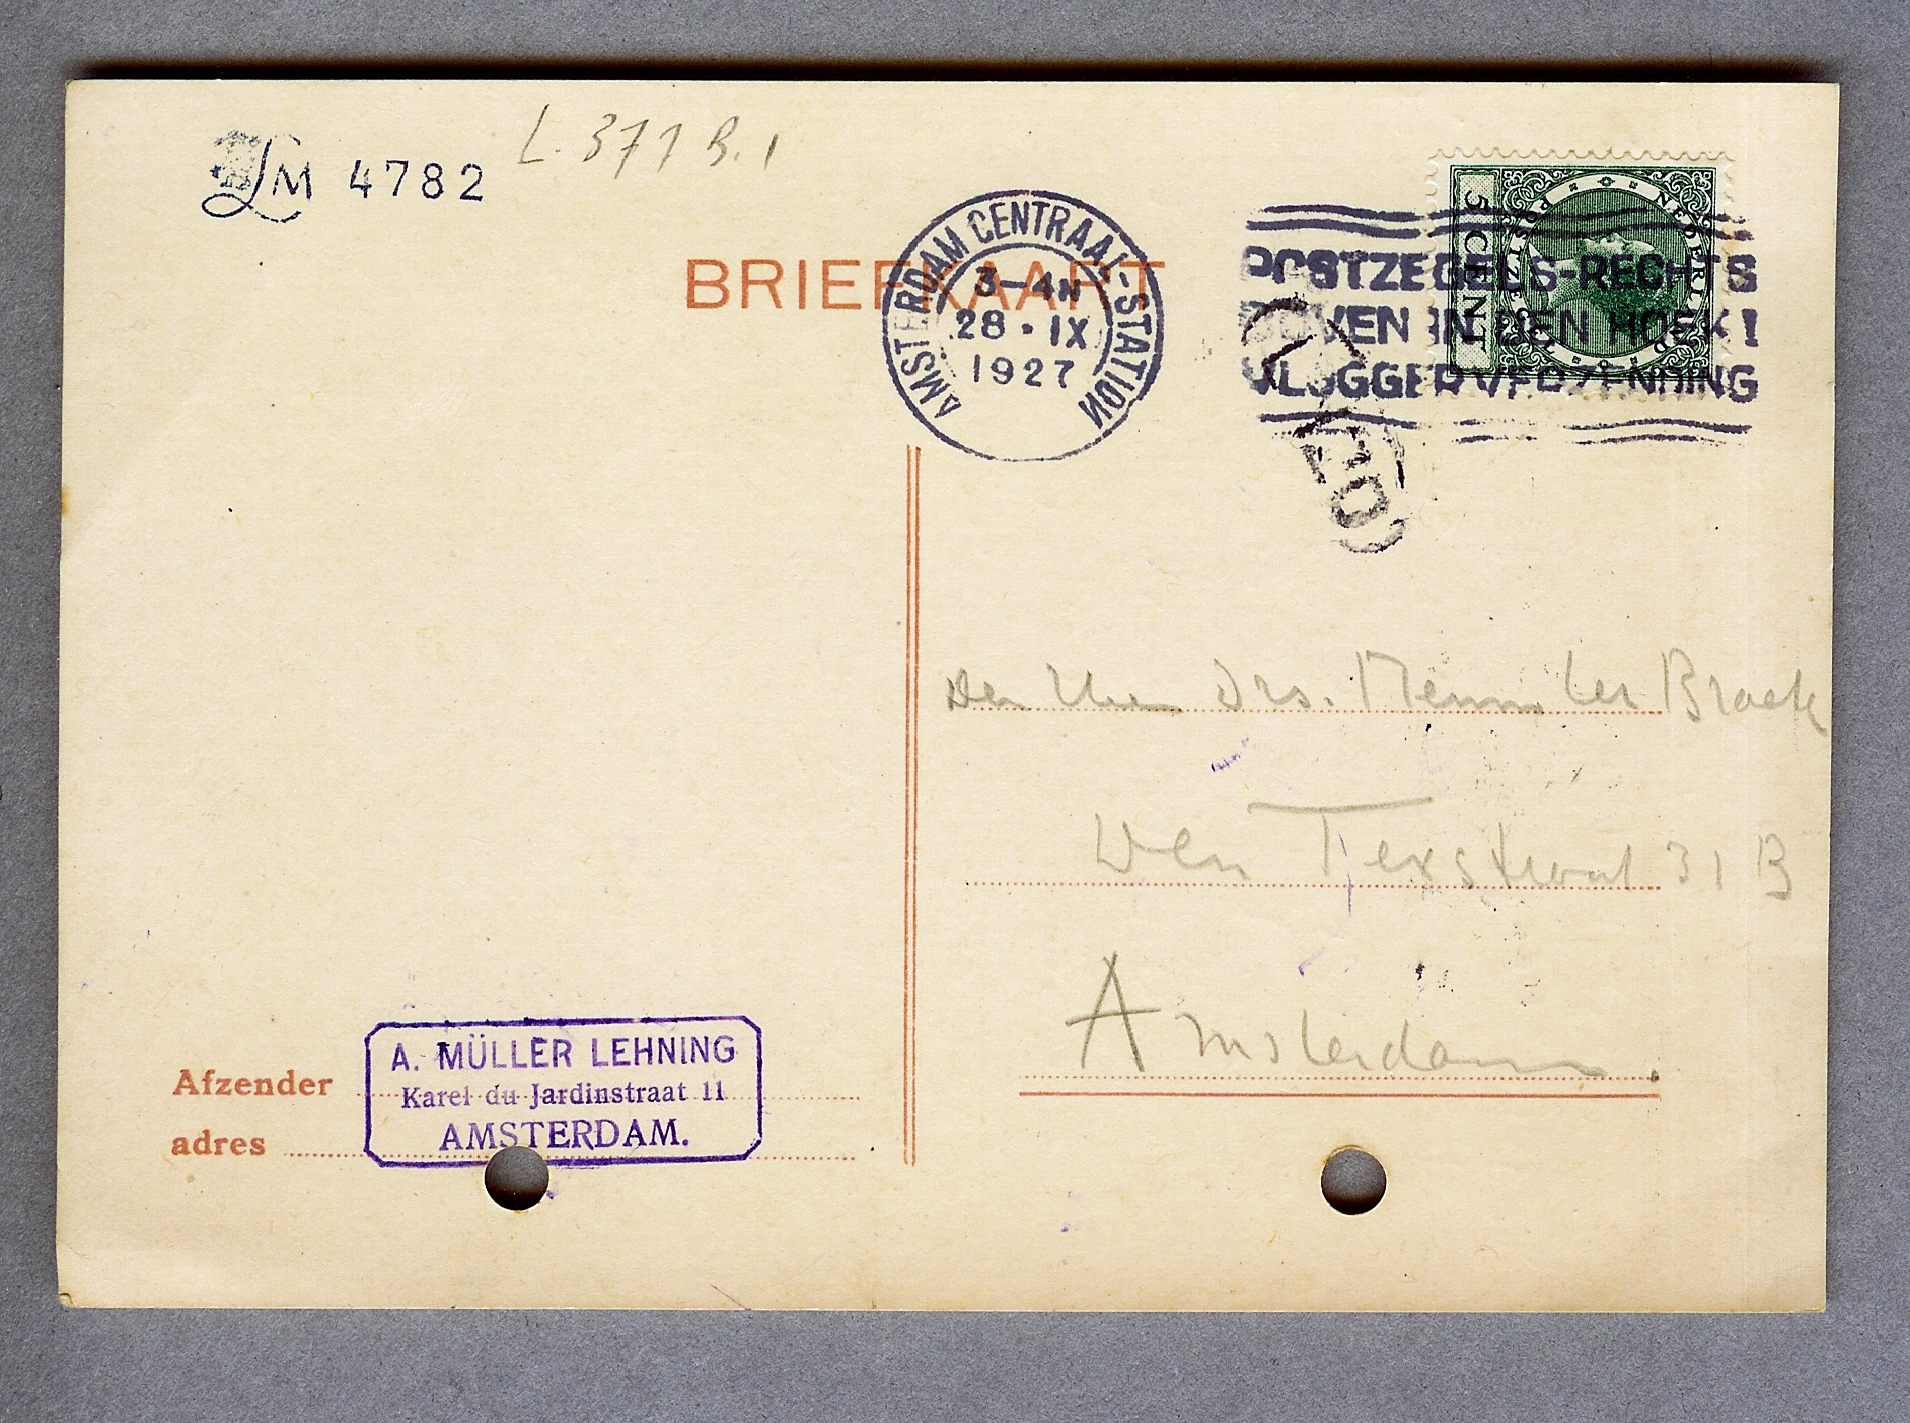 LM 4782
L. 377 B. 1
BRIEFKAART
AMSTERDAM CENTRAAL-STATION
3-4N
28·IX
1927
POSTZEGELS-RECHTS
BOVEN IN DEN HOEK!
VLUGGER VERZENDING
NEDERLAND
POSTZEGEL
5 CENT
Den Heer Drs. Menno ter Braak
Den Texstraat 31 B
Amsterdam.
Afzender
adres
A. MÜLLER LEHNING
Karel du Jardinstraat 11
AMSTERDAM.